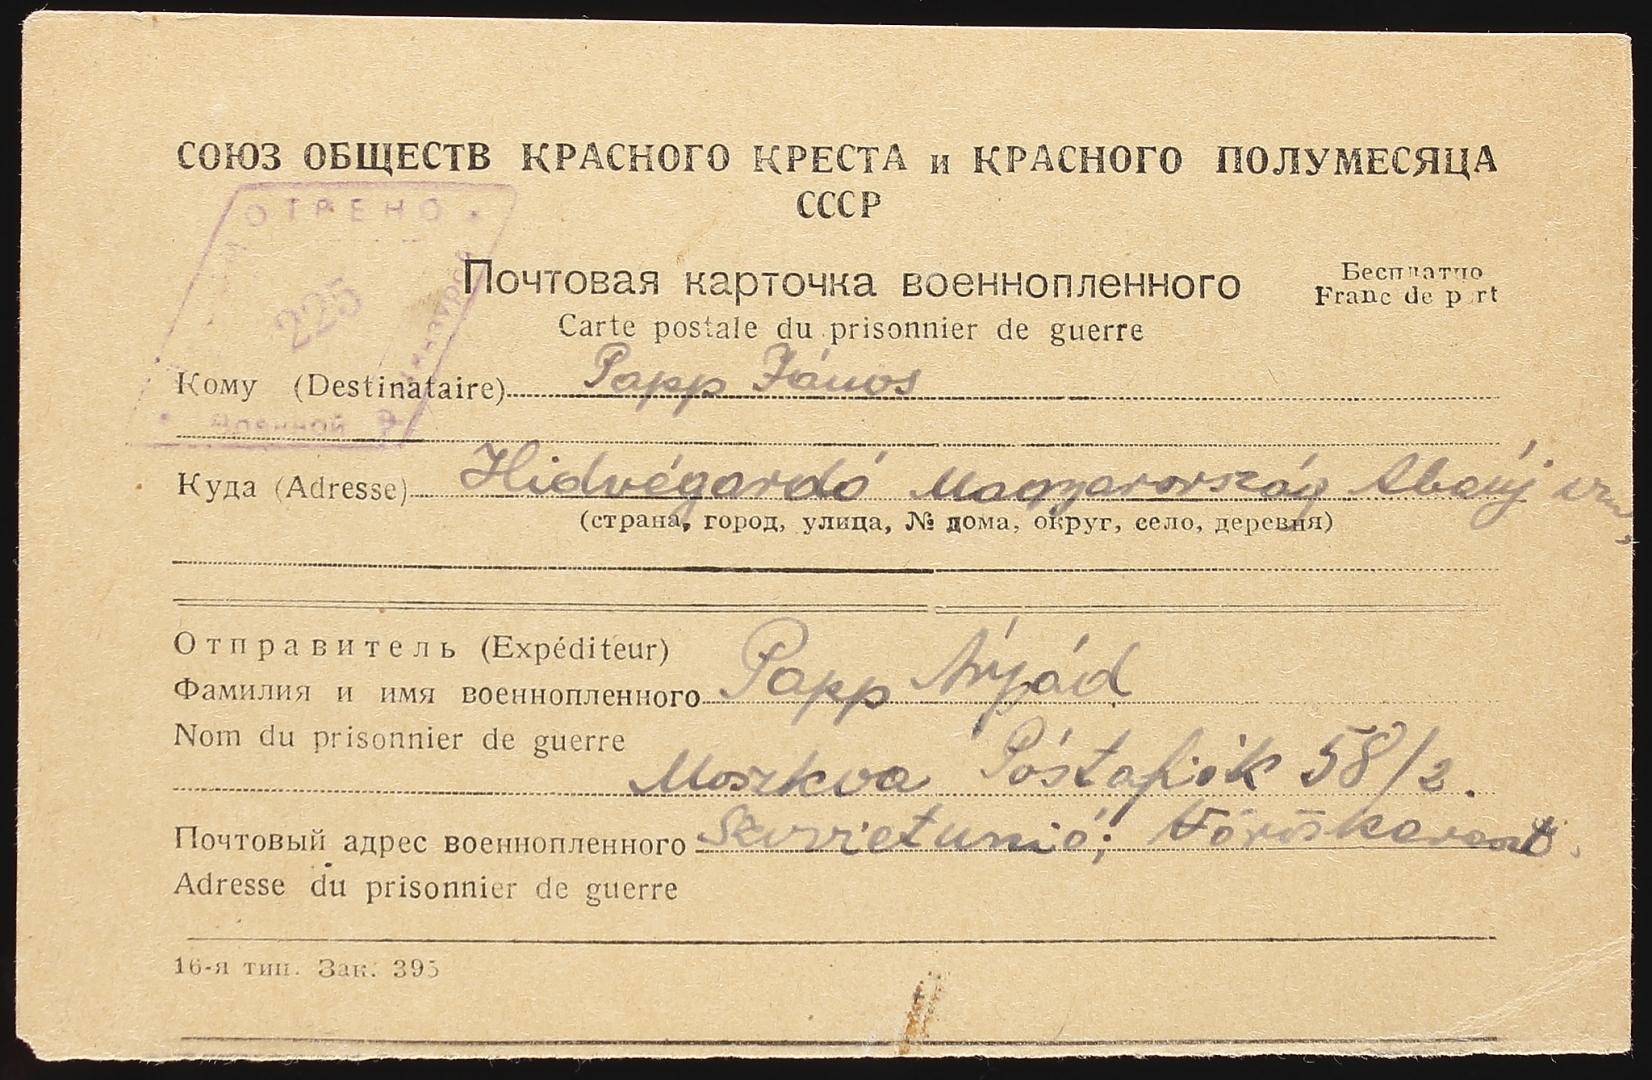 СОЮЗ ОБЩЕСТВ КРАСНОГО КРЕСТА и КРАСНОГО ПОЛУМЕСЯЦА
СССР
МОТРЕНО
225
Военной
Почтовая карточка военнопленного
Бесплатно
Franc de port
Carte postale du prisonnier de guerre
Кому (Destinataire) Papp János
Куда (Adresse) Hidvégardó Magyarország Abaúj
(страна, город, улица, № дома, округ, село, деревня)
Отправитель (Expéditeur)
Фамилия и имя военнопленного Papp Árpád
Nom du prisonnier de guerre
Moszkva Póstafiók 58/2.
Почтовый адрес военнопленного Szovietunió; Vöröskereszt.
Adresse du prisonnier de guerre
16-я тип. Зак. 395